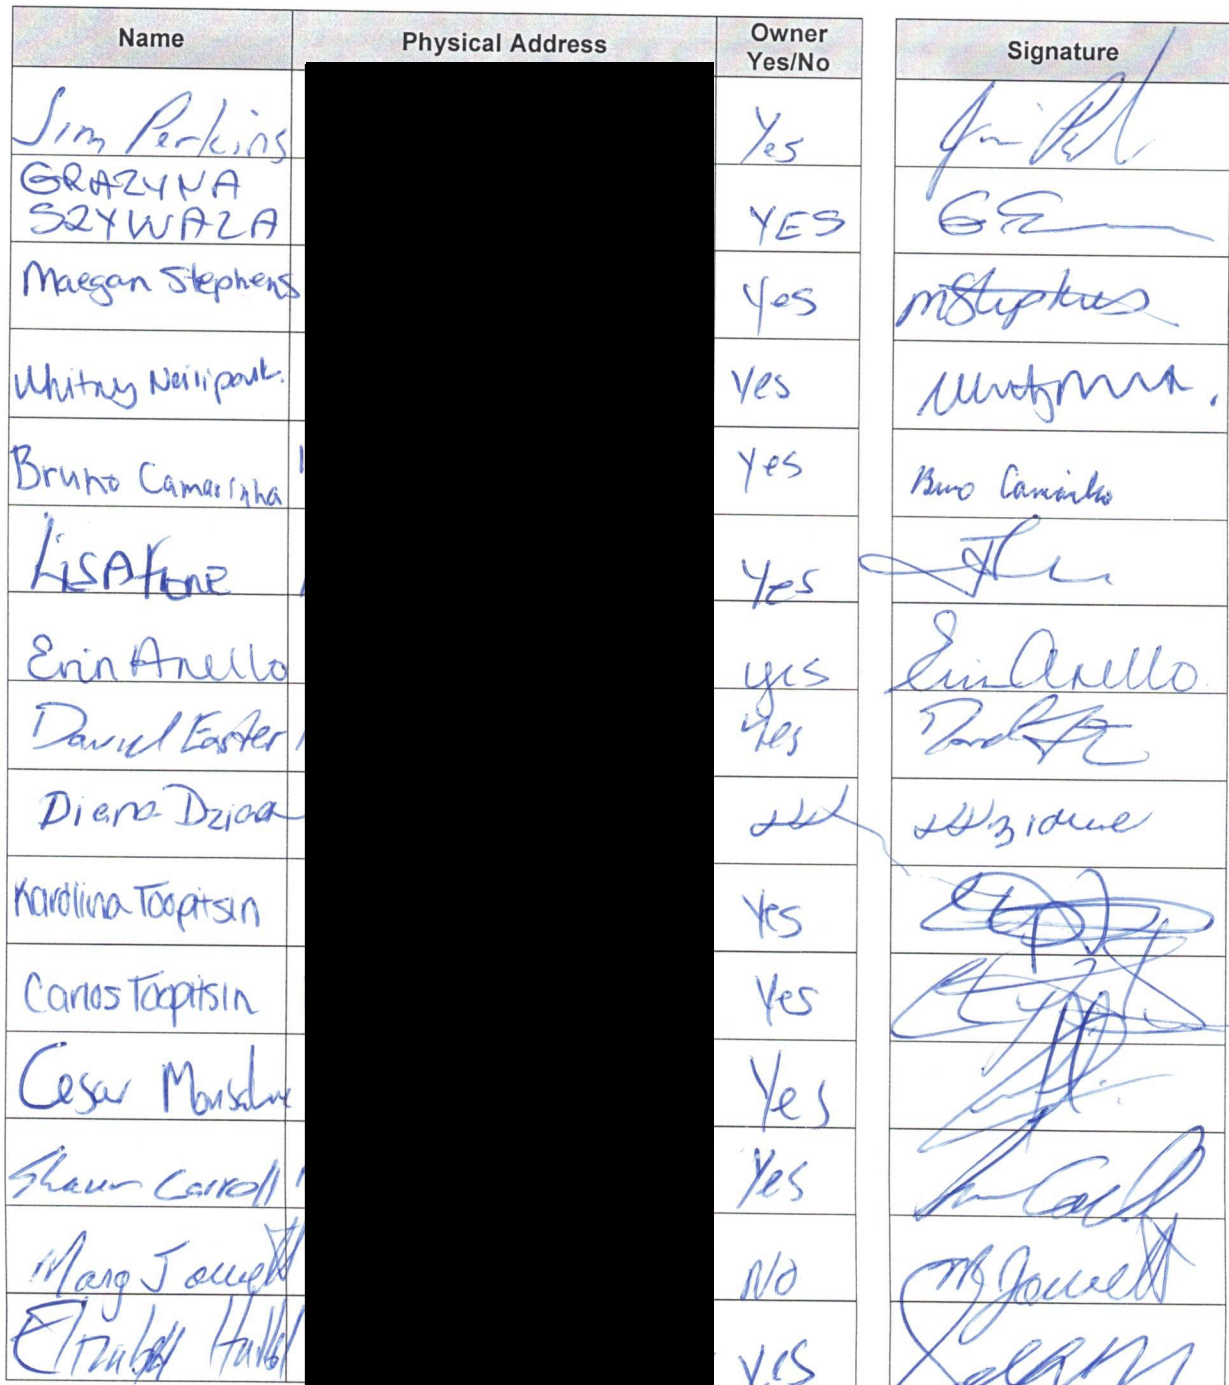 Name Physical Address Owner Yes/No Signature
Jim Perkins Yes
GRAZYNA
SZYWALA YES
Maegan Stephens Yes mStephens
Whitney Yes
Bruno Camarinha Yes Bruno Camarinha
LISA Yes
Erin Anello yes Erin Anello
Daniel Easter Yes
Diana
Karolina Toopitsin Yes
Carlos Toopitsin Yes
Cesar Monsalve Yes
Shaun Carroll Yes
Marg Jowett No M Jowett
Elizabeth yes